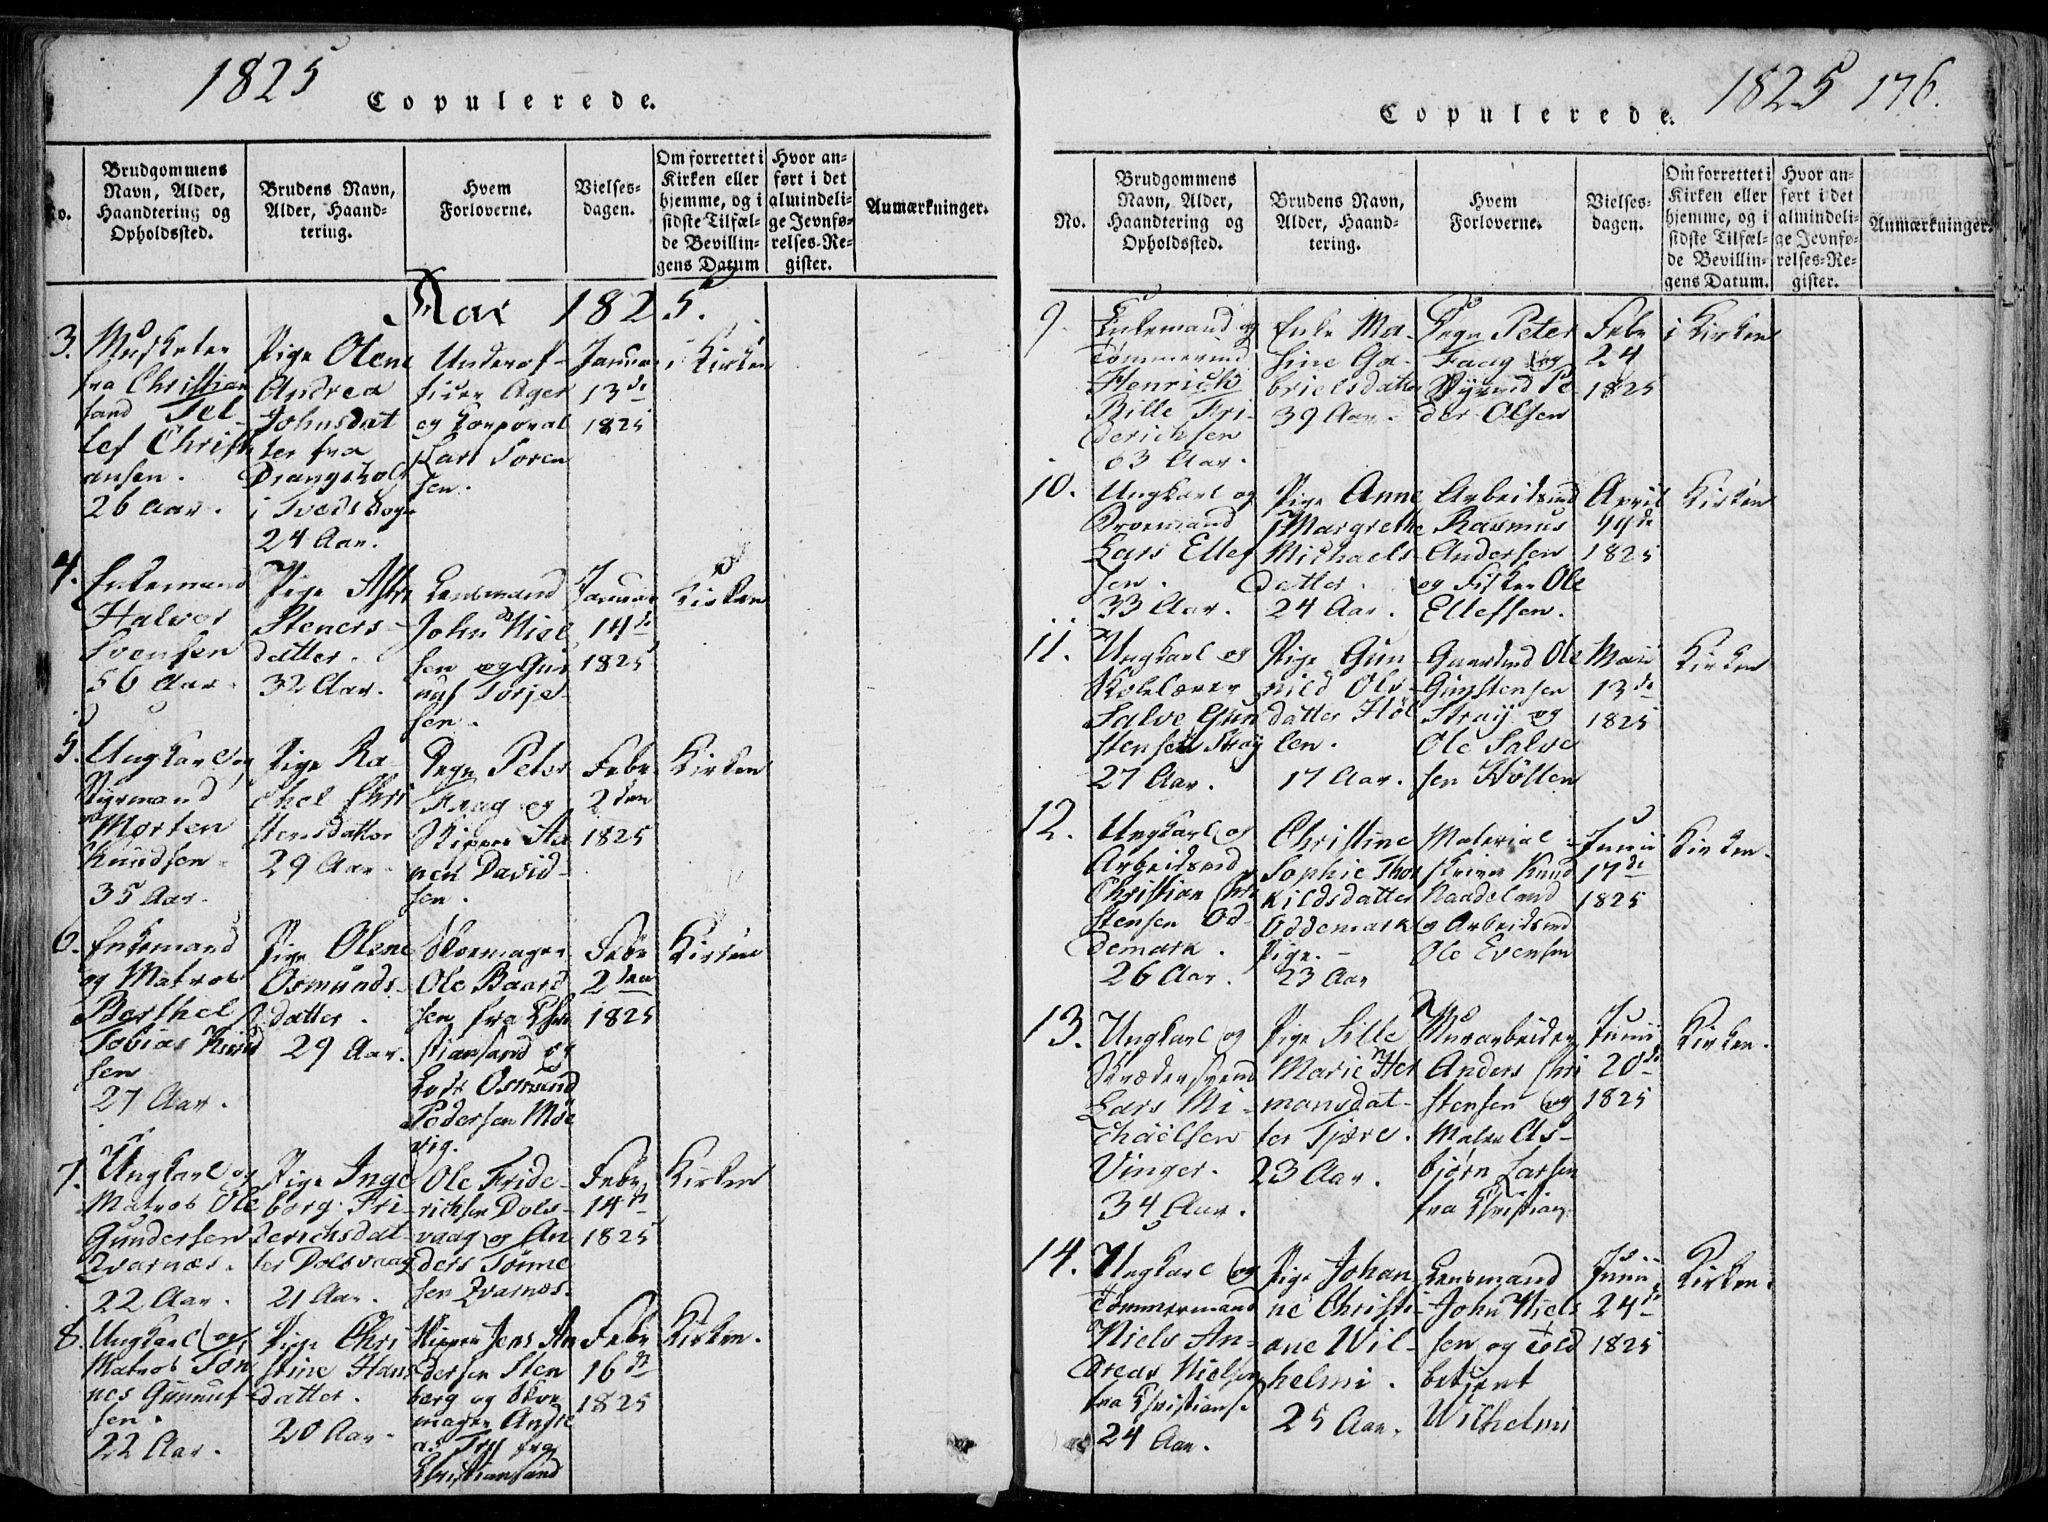 1825
Copulerede.
No.
Brudgommens
Navn, Alder,
Haandtering og
Opholdssted.
Brudens Navn,
Alder, Haand-
tering.
Hvem
Forloverne.
Vielses-
dagen.
Om forrettet i
Kirken eller
hjemme, og i
sidste Tilfæl-
de Bevillin-
gens Datum
Hvor an-
ført i det
almindeli-
ge Jevnfø-
relses-Re-
gister.
Anmærkninger.
Aar 1825.
3.
Musketer
fra Christian
sand Tel
lef Christi
ansen.
26 Aar.
Pige Olene
Andrea
Johnsdat
ter fra
Drangsholt
i Tveds Sogn
24 Aar.
Underof-
ficer Ager
og Corporal
Lars Soren
sen.
Januar
13de
1825
i Kirken
4.
Enkemand
Halvor
Svensen
56 Aar.
Pige Astri
Steners-
datter.
32 Aar.
Lensmand
John Niel
sen og Gun
nuf Torje-
sen.
Januar
14de
1825
Kirken
5.
Ungkarl og
Styrmand
Morten
Knudsen
35 Aar.
Pige Ra-
chel Chri
stensdatter
29 Aar.
Degn Peter
Faag og
Skipper Aa
nen David-
sen.
Febr
2den
1825
Kirken
6.
Enkemand
og Matros
Berthel
Tobias Knud
sen
27 Aar.
Pige Olene
Osmunds-
datter.
29 Aar.
Skomager
Ole Baard
sen fra Chri
stiansand og
Lods Osmund
Pedersen Mös
vig.
Febr
2den
1825
Kirken
7.
Ungkarl og
Matros Ole
Gundersen
Qvarnæs.
22 Aar.
Pige Inge
borg Fri-
derichsdat-
ter Dolsvaag
21 Aar.
Ole Fride-
richsen Dols-
vaag og An
ders Tönne
sen Qvarnæs.
Febr
14de
1825
Kirken
8.
Ungkarl og
Matros Tön
nes Gunnuf-
sen.
22 Aar.
Pige Chri
stine Hans
datter.
20 Aar.
Skipper Jens An
dersen Sten
berg og Skoe
mager Andre
as Fry fra
Christiansand
Febr
16de
1825
Kirken.
1825 176.
Copulerede.
No.
Brudgommens
Navn, Alder,
Haandtering og
Opholdssted.
Brudens Navn,
Alder, Haand-
tering.
Hvem
Forloverne.
Vielses-
dagen.
Om forrettet i
Kirken eller
hjemme, og i
sidste Tilfæl-
de Bevillin-
gens Datum.
Hvor an-
ført i det
almindeli-
ge Jevnfø-
relses-Re-
gister.
Anmærkninger.
9.
Enkemand og
Tömmermd
Henrich
Bille Fri-
derichsen
63 Aar.
Enke Ma-
sine Ga-
brielsdatter
39 Aar.
Degn Peter
Faag og
Styrmd Pe
der Olsen
Febr
24
1825
i Kirken
10.
Ungkarl og
Lars Ellef
sen.
33 Aar.
Pige Anne
Margrethe
Michaels-
datter.
24 Aar.
Arbeidsmd
Rasmus
Andersen
og Fisker Ole
Ellefsen.
April
1825
Kirken
11.
Ungkarl og
Skolelærer
Salve Gun
stensen Stray
27 Aar.
Pige Gun-
nild Ols-
datter Höl
len.
17 Aar.
Gaardmd Ole
Gunstensen
Stray og
Ole Salve
sen Höllen
Maii
13de
1825
Kirken
12.
Ungkarl og
Arbeidsmd
Christian Chri
stensen Od-
demark.
26 Aar.
Christine
Sophie Thor
kildsdatter
Oddemark
Pige.
23 Aar
Material-
skriver Knud
Raadeland
og Arbeidsmd
Ole Evensen
Junii
17de
1825
Kirken.
13.
Ungkarl og
Skrædersvend
Lars Mi-
chaelsen
Vinger.
34 Aar.
Pige Sille
Marie Her
mansdat-
ter Tjære.
23 Aar.
Murarbeider
Anders Chri
stensen og
Maler As-
bjørn Larsen
fra Christians
Junii
20de
1825
Kirken.
14.
Ungkarl og
Tömmermand
Niels An-
dreas Nielsen
fra Christians
24 Aar.
Pige Johan
ne Christi-
ane Wil-
helmi.
25 Aar.
Lensmand
John Niels
sen og Told
betjent
Wilhelmi
Junii
24de
1825
Kirken.